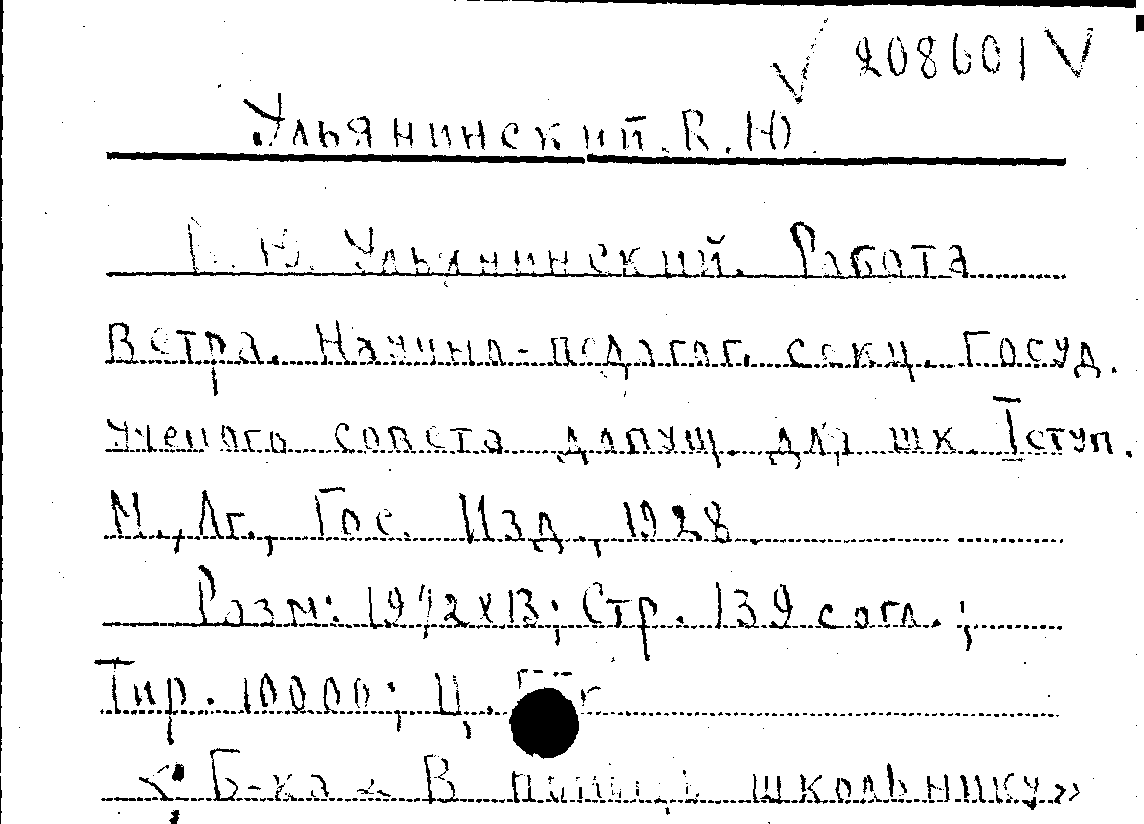 √ 208601 V
Ульянинский. В. Ю.
В. Ю. Ульянинский. Работа
ветра. Научно-педагог. секц. Госуд.
ученого совета допущ. для шк. I ступ.
М., Лг., Гос. Изд., 1928.
Разм: 19 1/2 x 13; Стр. 139 с огл.;
Тир. 10000; Ц.
«Б-ка « В помощь школьнику»